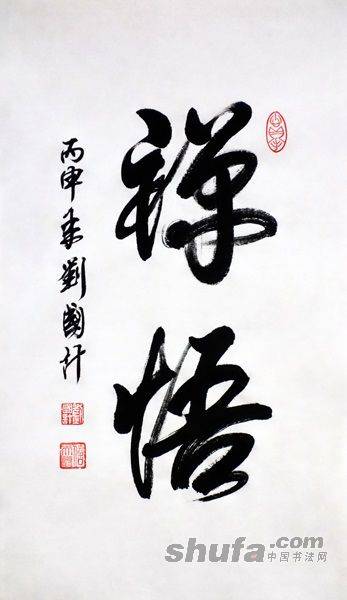 禪悟
丙申春劉國
shufa.com
中国书法网